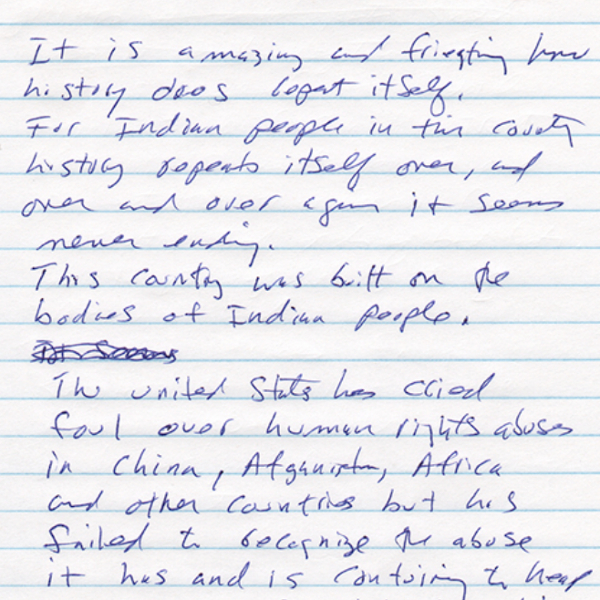 It is amazing and frieghting how
history does repeat itself.
For Indian people in this country
history repeats itself over, and
over and over again it seems
never ending.
This country was built on the
bodies of Indian people.
It Seems
The united States has cried
foul over human rights abuses
in China, Afganistan, Africa
and other countries but has
failed to recognize the abuse
it has and is contuining to heap